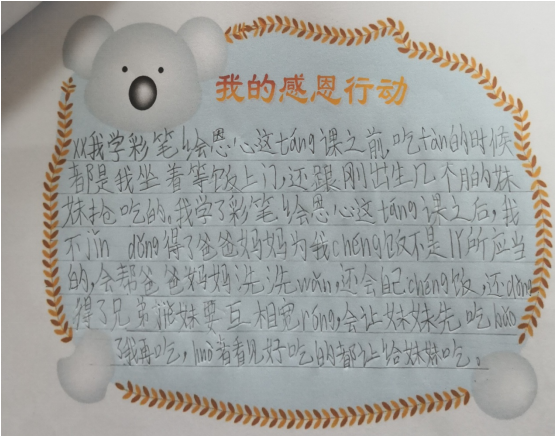 我的感恩行动
xx我学彩笔绘恩心这táng课之前,吃fàn的时候
都是我坐着等饭上门,还跟刚出生几个月的妹
妹抢吃的。我学了彩笔绘恩心这táng课之后,我
不jǐn dǒng得了爸爸妈妈为我chéng饭不是lǐ所应当
的,会帮爸爸妈妈洗洗wǎn,还会自己chéng饭,还dǒng
得了兄弟姐妹要互相宽róng,会让妹妹先吃bǎo
了我再吃,huò者看见好吃的都让给妹妹吃。